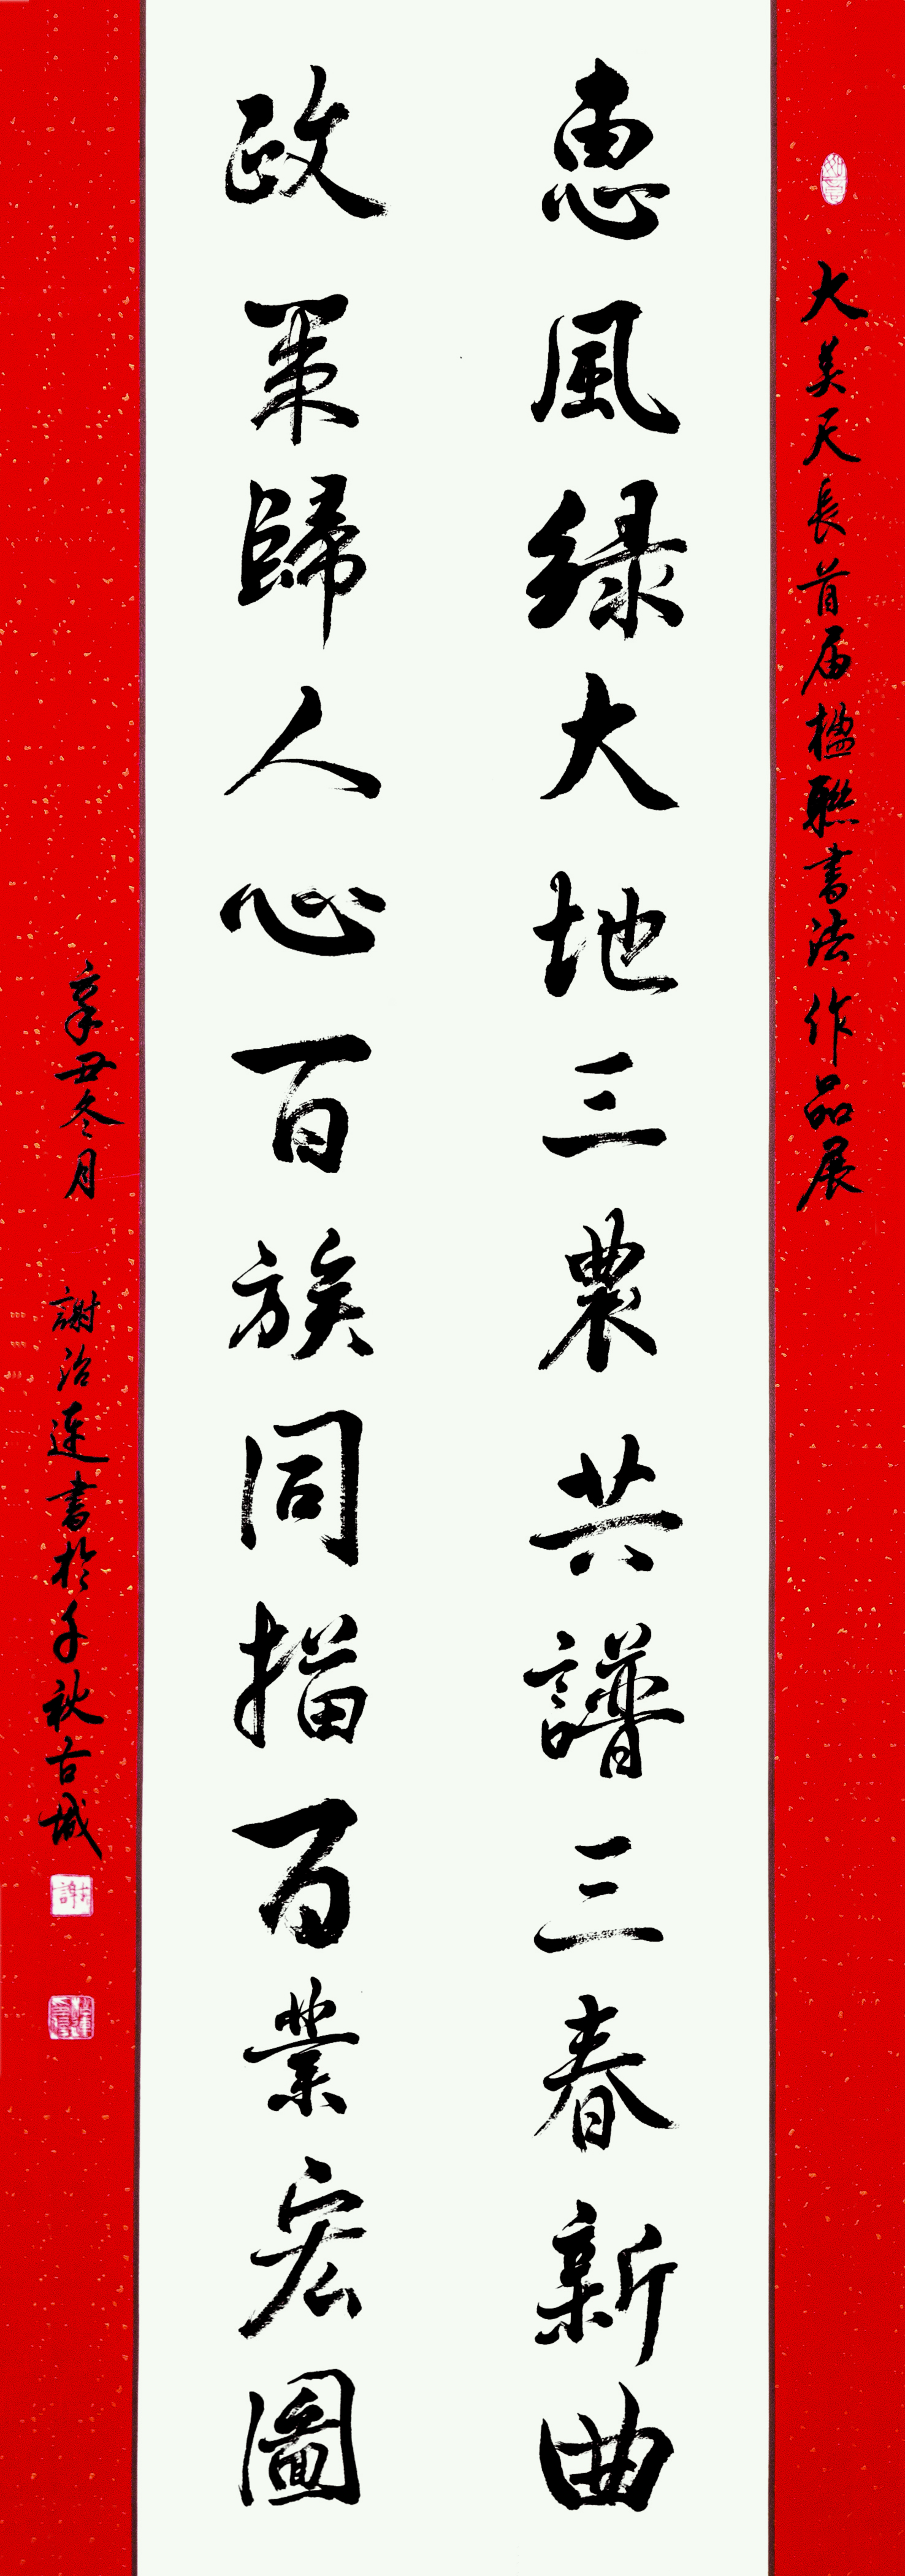 大美天長首届楹聯書法作品展
惠風緑大地三農共譜三春新曲
政策歸人心百族同描百業宏圖
辛丑冬月 謝治連書於千秋古城
謝